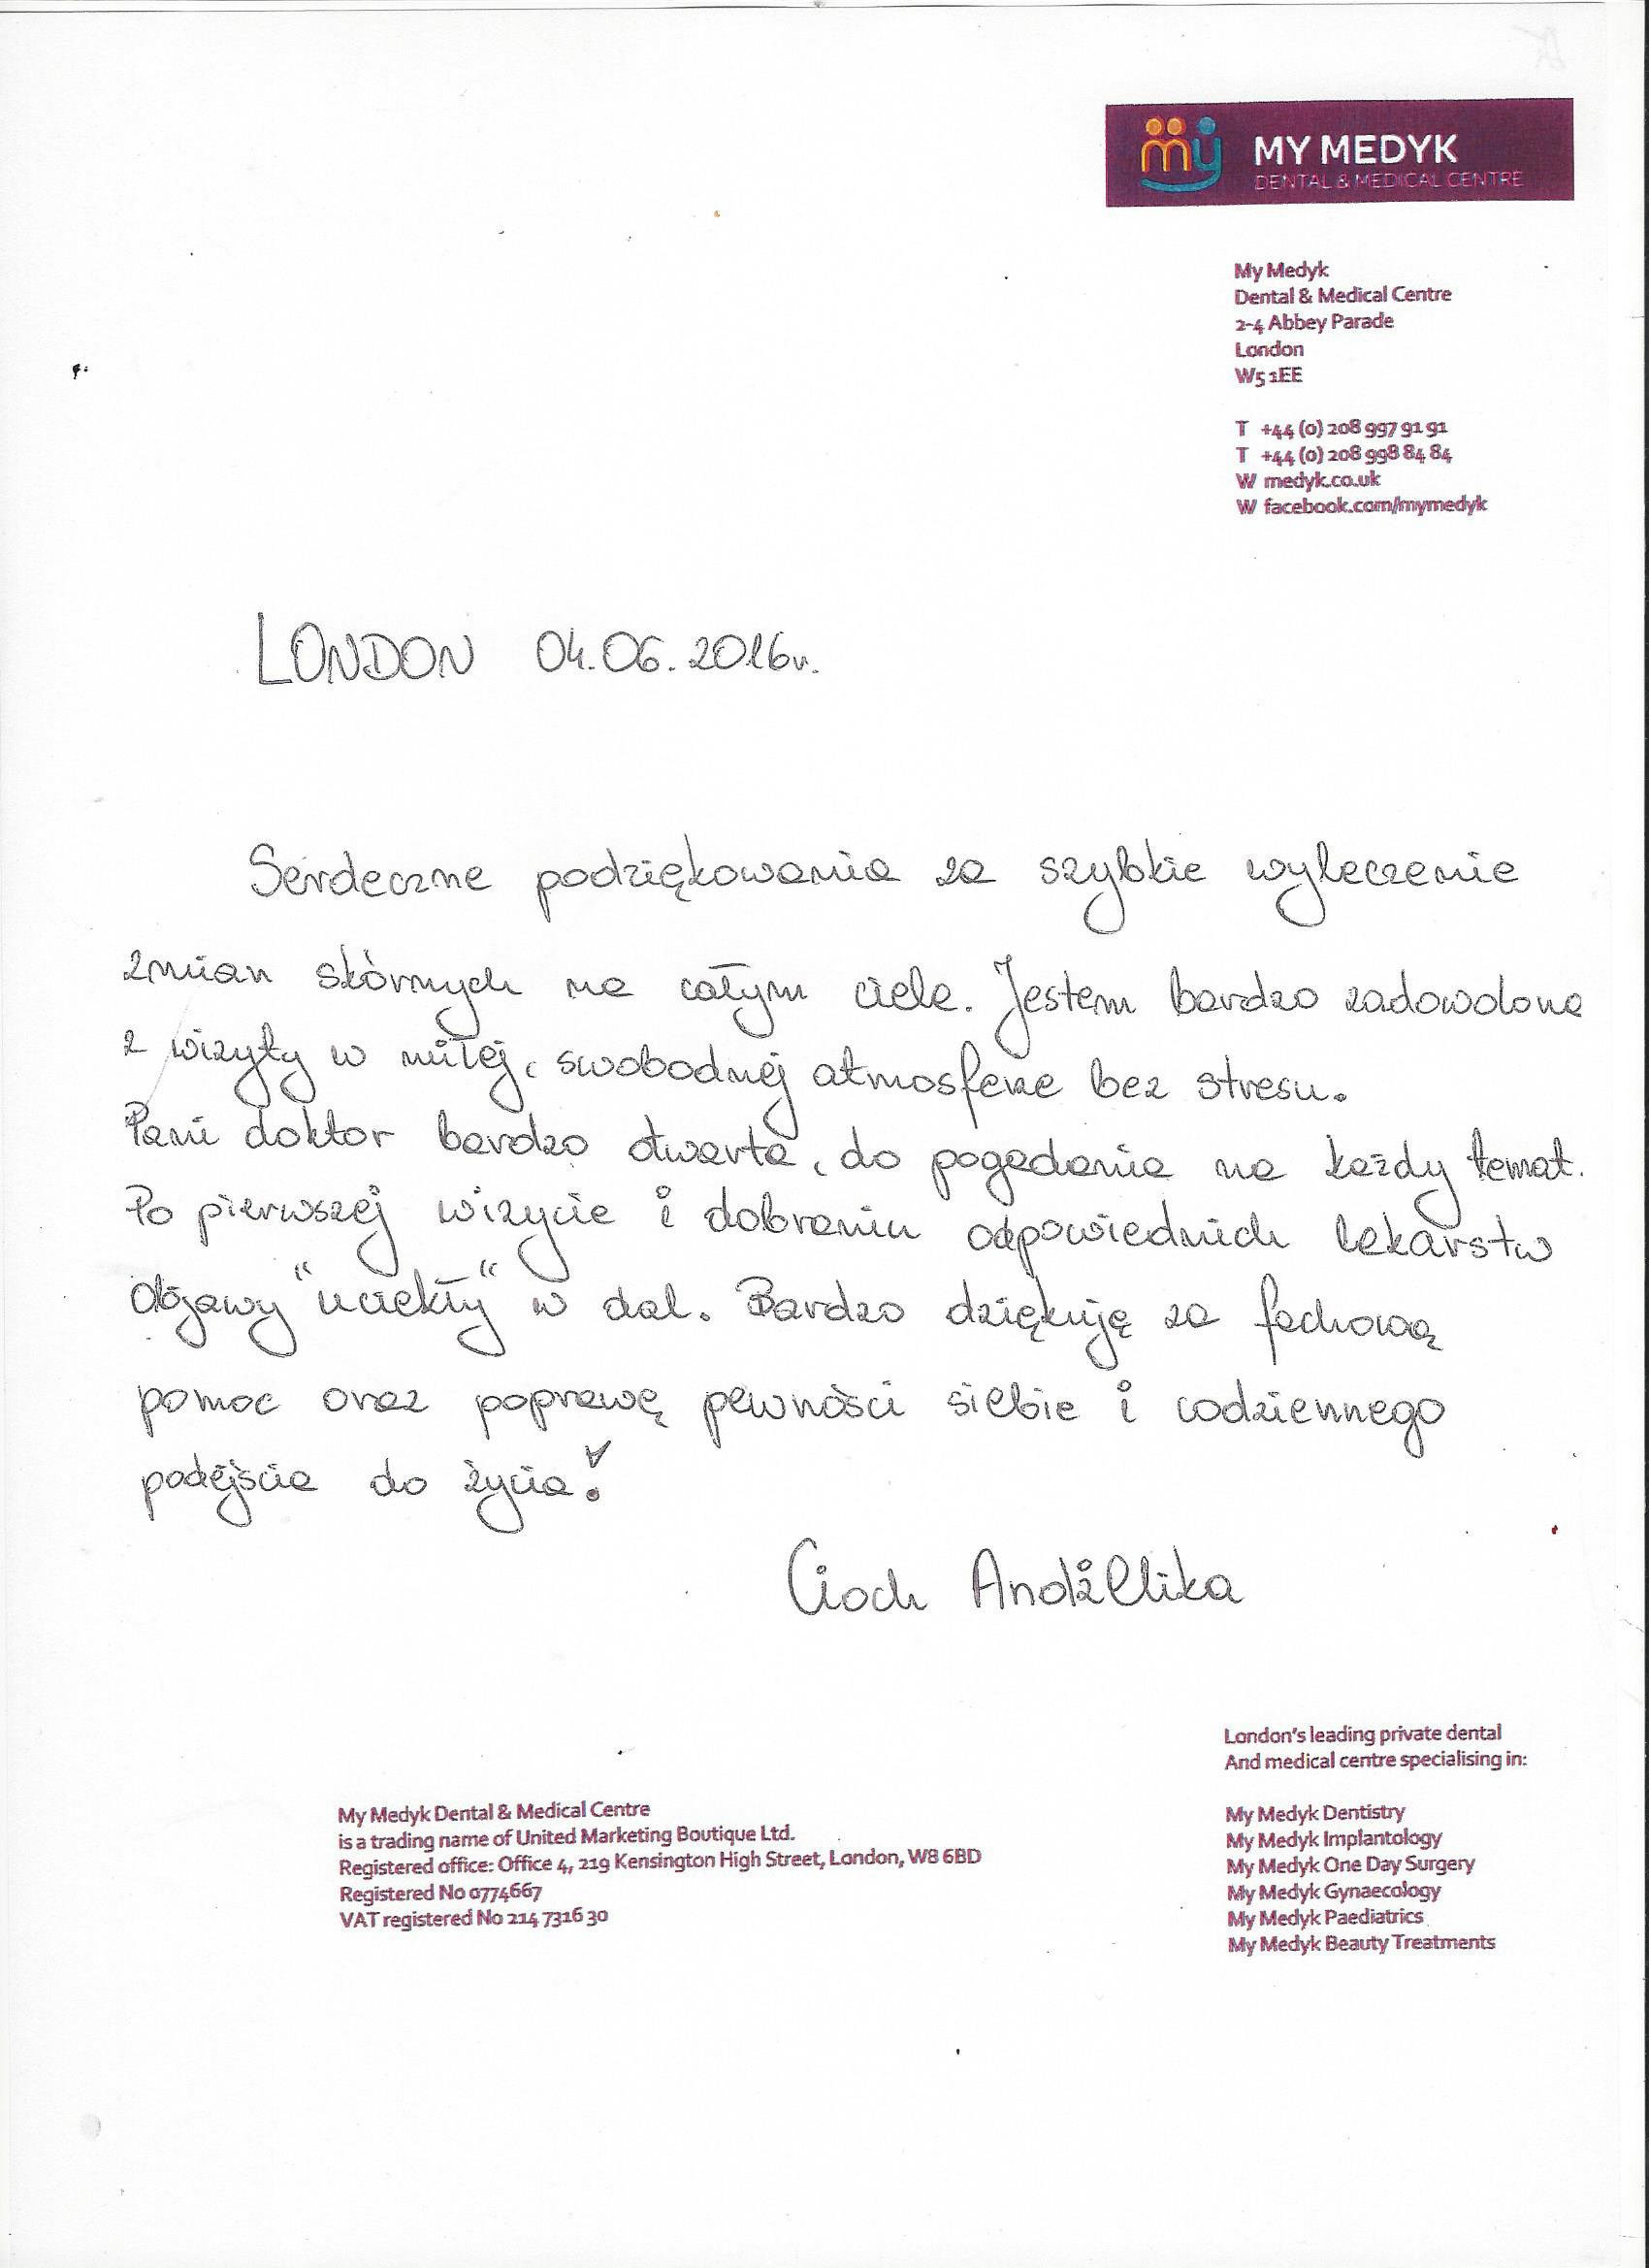 my MY MEDYK
DENTAL & MEDICAL CENTRE
My Medyk
Dental & Medical Centre
2-4 Abbey Parade
London
W5 1EE
T +44 (0) 208 997 91 91
T +44 (0) 208 998 84 84
W medyk.co.uk
W facebook.com/mymedyk
LONDON 04.06.2016r.
Serdeczne podziękowania za szybkie wyleczenie
zmian skórnych na całym ciele. Jestem bardzo zadowolona
z wizyty w miłej, swobodnej atmosferze bez stresu.
Pani doktor bardzo otwarta, do pogadania na każdy temat.
Po pierwszej wizycie i dobraniu odpowiednich lekarstw
objawy "uciekły" w dal. Bardzo dziękuję za fachową
pomoc oraz poprawę pewności siebie i codziennego
podejścia do życia!
Cioch Andżelika
London's leading private dental
And medical centre specialising in:
My Medyk Dentistry
My Medyk Implantology
My Medyk One Day Surgery
My Medyk Gynaecology
My Medyk Paediatrics
My Medyk Beauty Treatments
My Medyk Dental & Medical Centre
is a trading name of United Marketing Boutique Ltd.
Registered office: Office 4, 219 Kensington High Street, London, W8 6BD
Registered No 0774667
VAT registered No 214 7316 30